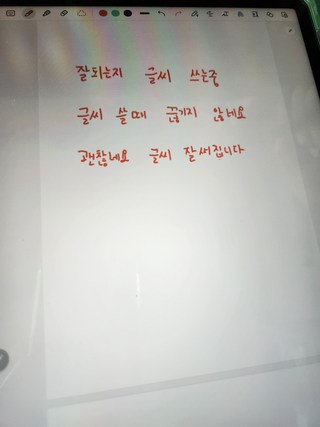 잘되는지 글씨 쓰는중
글씨 쓸때 끊기지 않네요
괜찮네요 글씨 잘써집니다